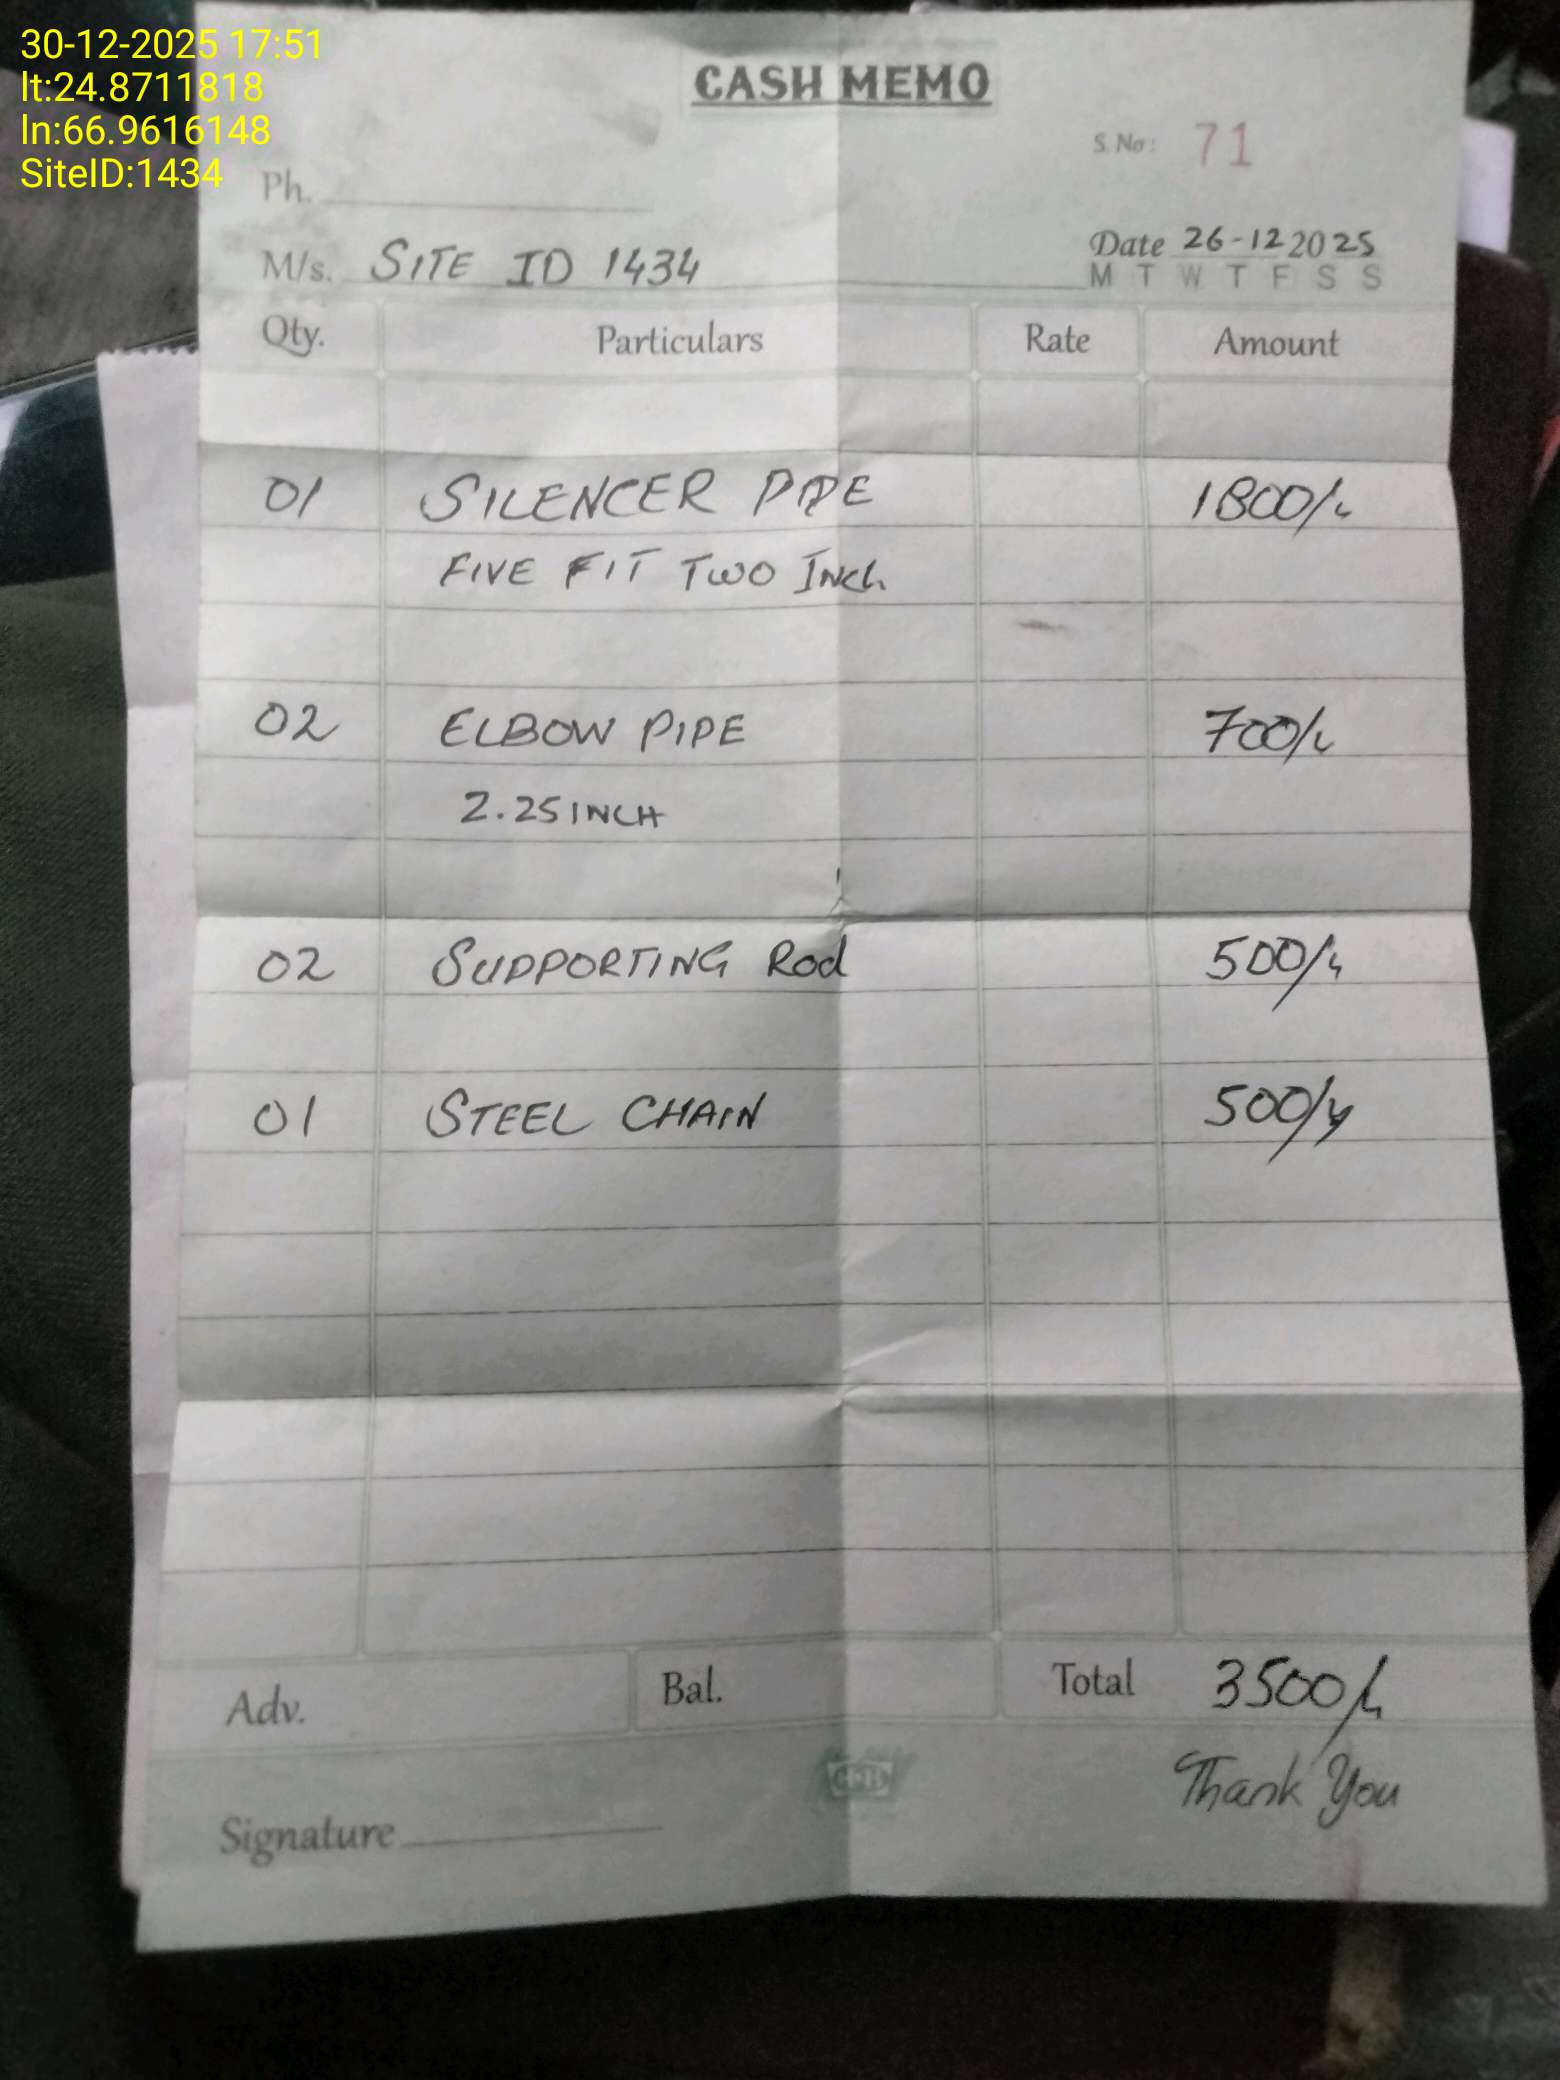 30-12-2025 17:51
lt:24.8711818
ln:66.9616148
SiteID:1434
CASH MEMO
S. No: 71
Ph.
Date 26-12 2025
M/s. SITE ID 1434
M T W T F S S
Qty. Particulars Rate Amount
01 SILENCER PIPE 1800/-
FIVE FIT TWO INCh
02 ELBOW PIPE 700/-
2.25 INCH
02 SUPPORTING Rod 500/-
01 STEEL CHAIN 500/-
Adv. Bal. Total 3500/-
Thank You
Signature